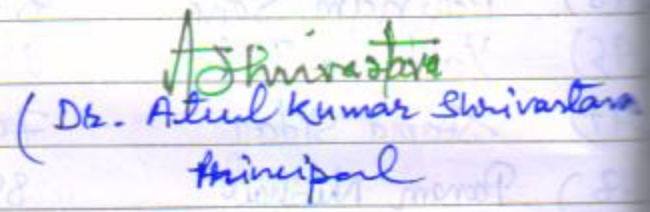 AShrivastava
(Dr. Atul Kumar Shrivastava
Principal